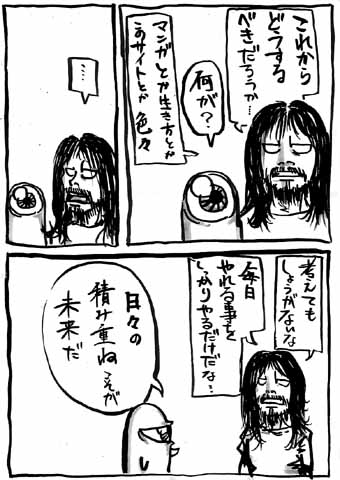 これから
どうする
べきだろうか…
何が？
マンガとか生き方とか
このサイトとか 色々
……
考えても
しょうがないな
毎日
やれる事を
しっかりやるだけだな…
日々の
積み重ねこそが
未来だ